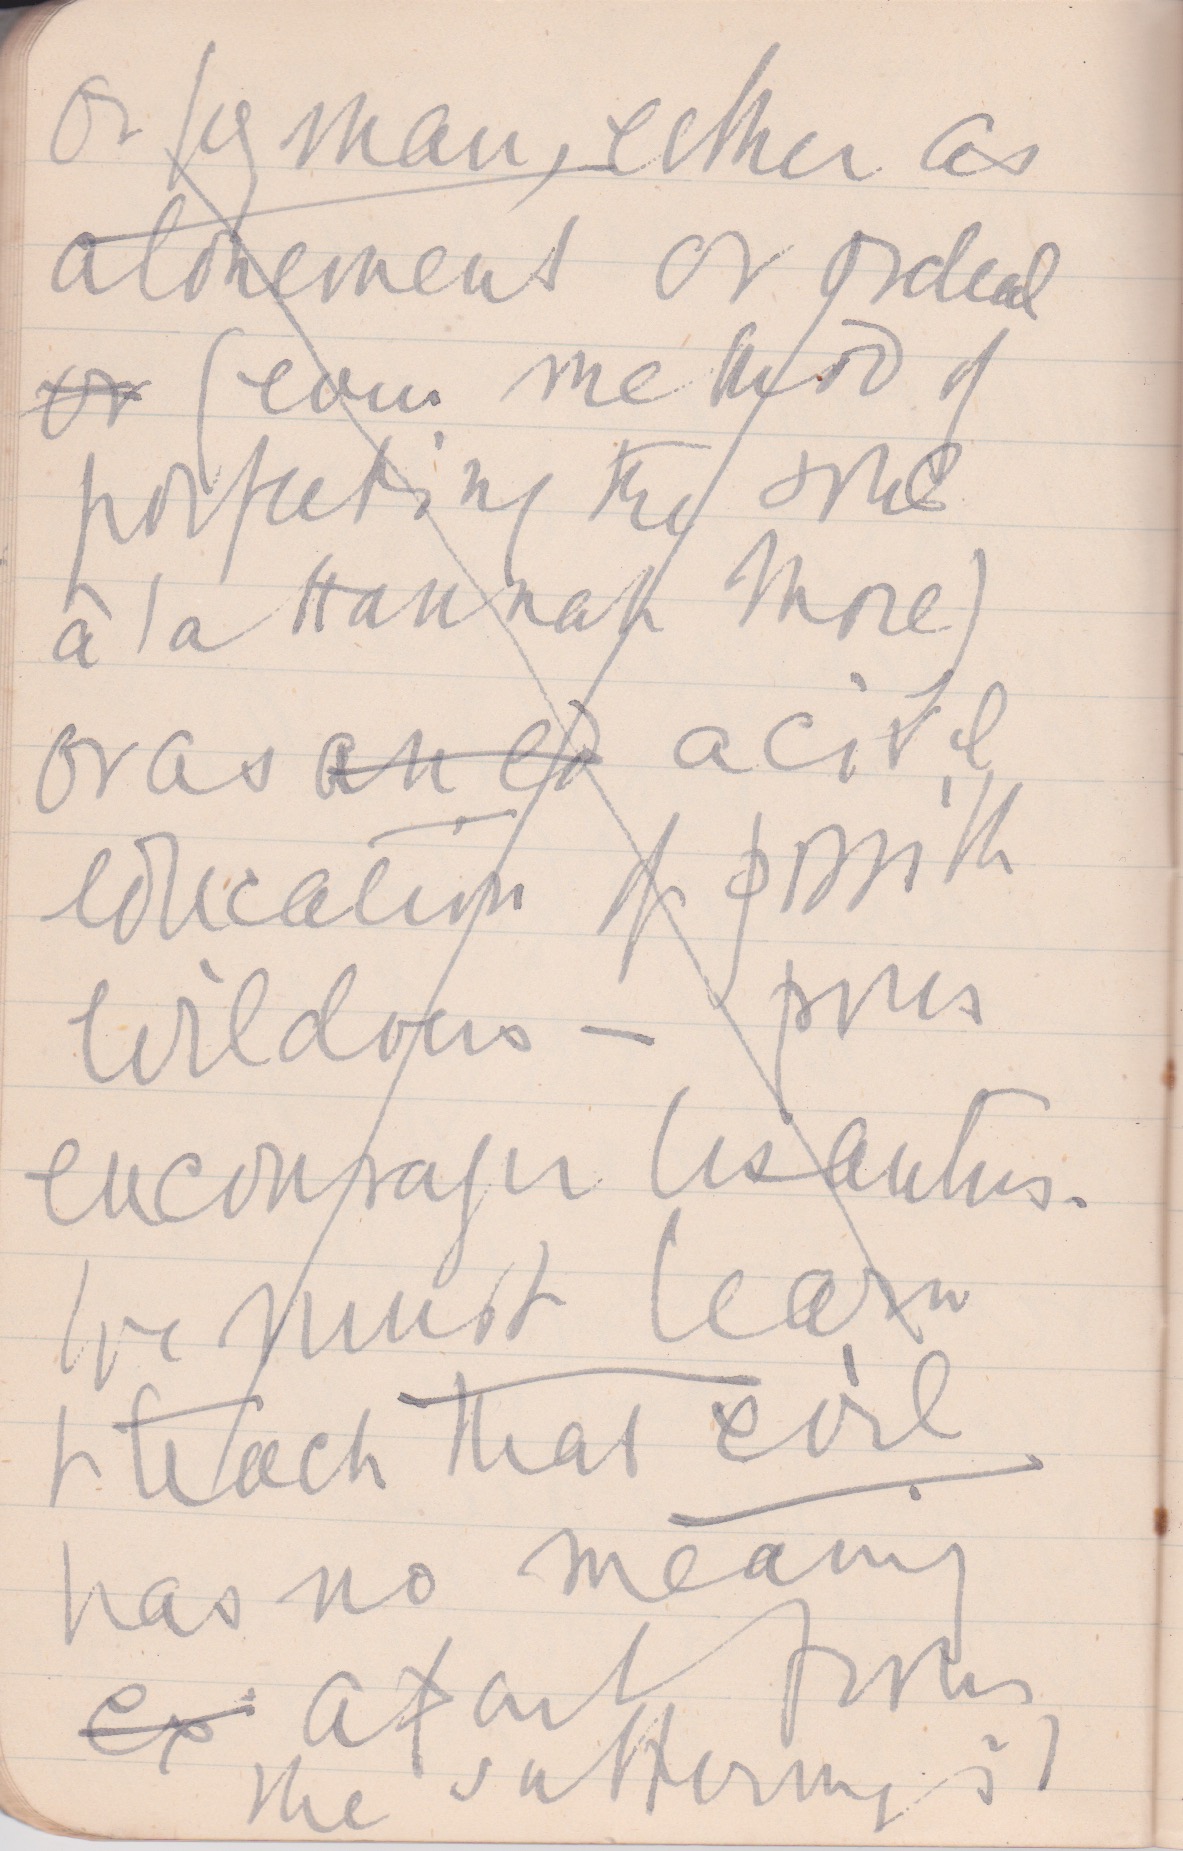 or by man, either as
atonement or ordeal
or (even method of
perfecting the soul
à la Hannah More)
or as an ed active
education of possible
evildoers — pour
encourager les autres.
We must learn
& teach that evil
has no meaning
ex apart from
the suffering s)